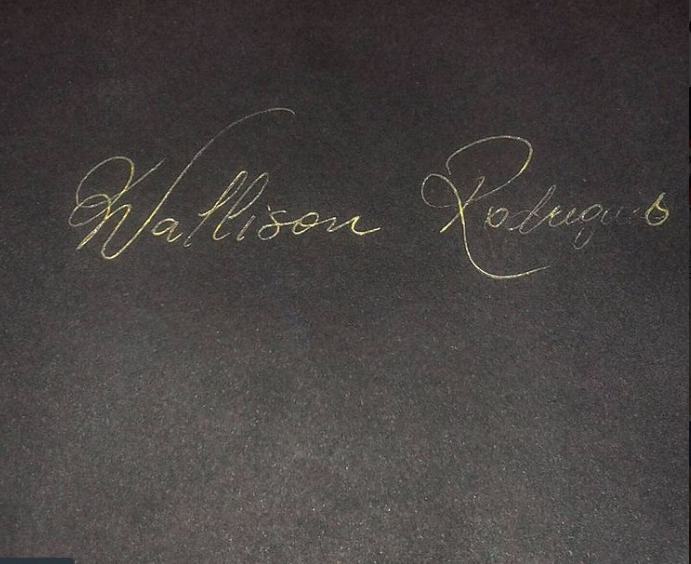 Wallison Rodrigues